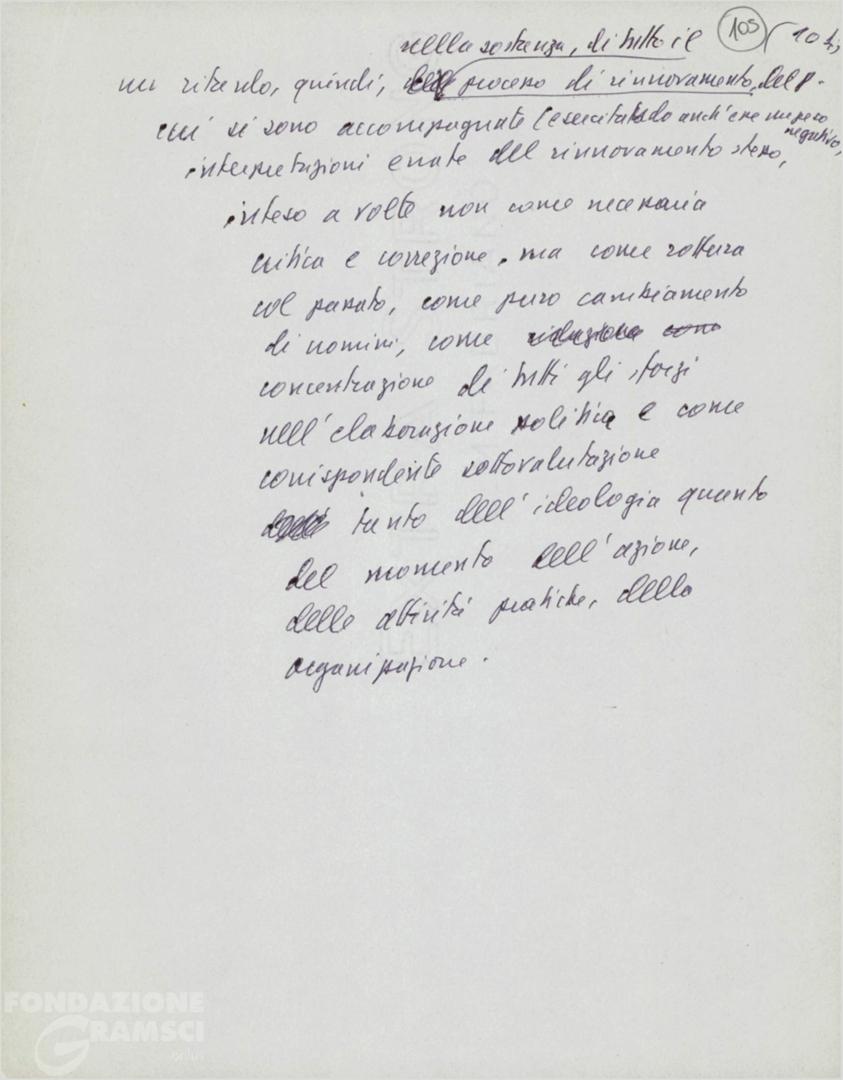 nella sostanza, di tutto il 105 (104)
un ritardo, quindi, del processo di rinnovamento, del p.
cui si sono accompagnate (esercitando anch'esse un peso
negativo,
interpretazioni errate del rinnovamento stesso,
inteso a volte non come necessaria
critica e correzione, ma come rottura
col passato, come puro cambiamento
di uomini, come riduzione come
concentrazione di tutti gli sforzi
nell'elaborazione politica e come
corrispondente sottovalutazione
tanto dell'ideologia quanto
del momento dell'azione,
delle attività pratiche, della
organizzazione.
FONDAZIONE
GRAMSCI
onlus